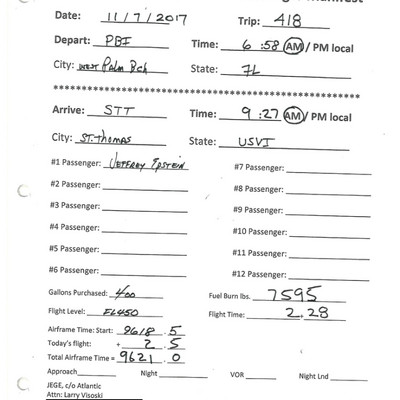 Manifest
Date: 11/7/2017 Trip: 418
Depart: PBI Time: 6:58 AM / PM local
City: West Palm Bch State: FL
************************************************
Arrive: STT Time: 9:27 AM / PM local
City: St. Thomas State: USVI
#1 Passenger: Jeffrey Epstein #7 Passenger:
#2 Passenger: #8 Passenger:
#3 Passenger: #9 Passenger:
#4 Passenger: #10 Passenger:
#5 Passenger: #11 Passenger:
#6 Passenger: #12 Passenger:
Gallons Purchased: 400 Fuel Burn lbs. 7595
Flight Level: FL450 Flight Time: 2.28
Airframe Time: Start: 9618.5
Today's flight: + 2.5
Total Airframe Time = 9621.0
Approach Night VOR Night Lnd
JEGE, c/o Atlantic
Attn: Larry Visoski